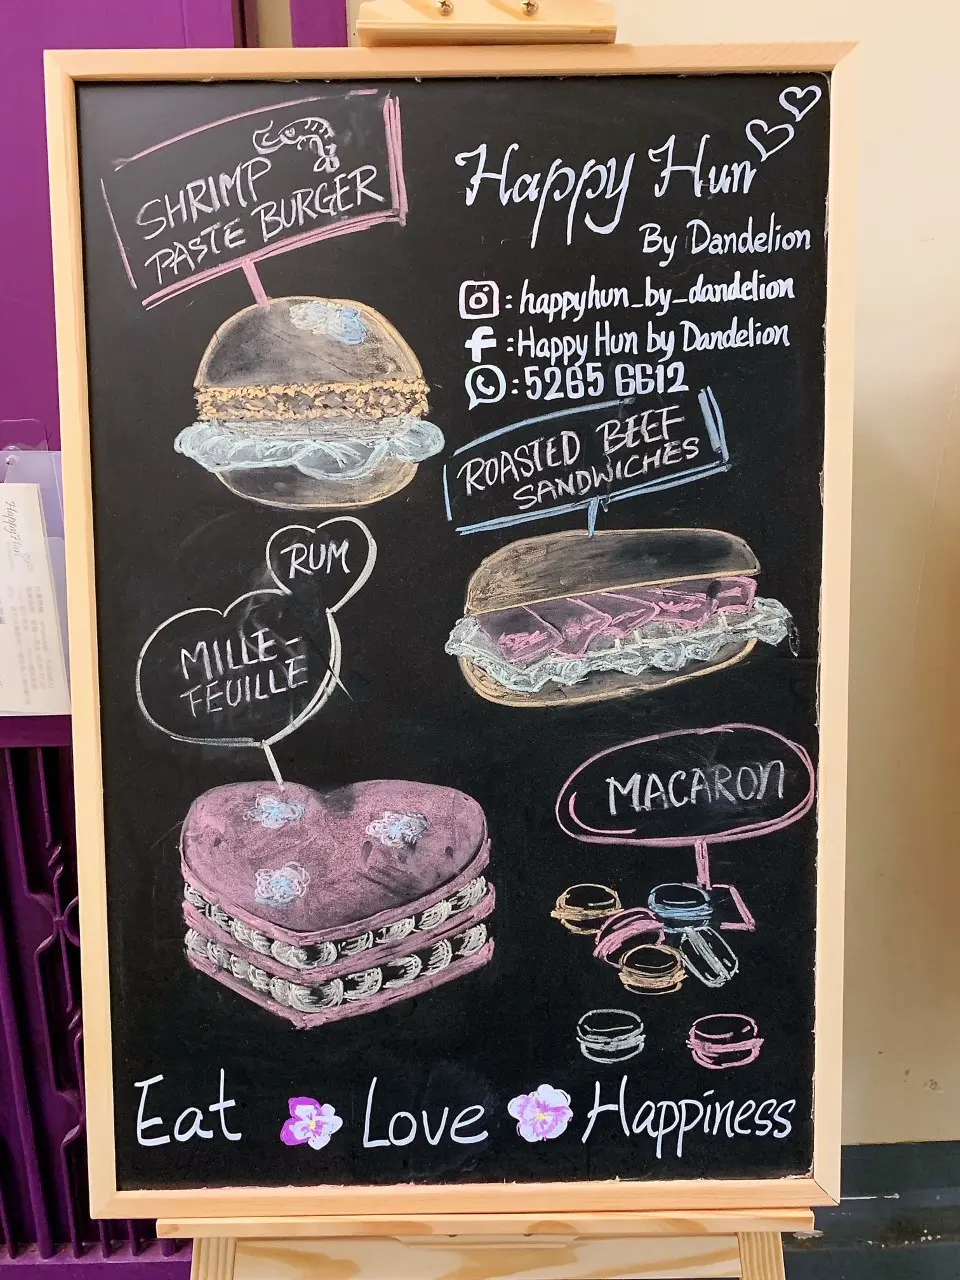 SHRIMP
PASTE BURGER
Happy Hun
By Dandelion
: happyhun_by_dandelion
f : Happy Hun by Dandelion
: 5265 6612
ROASTED BEEF
SANDWICHES
RUM
MILLE-
FEUILLE
MACARON
Eat Love Happiness
Happy Hun